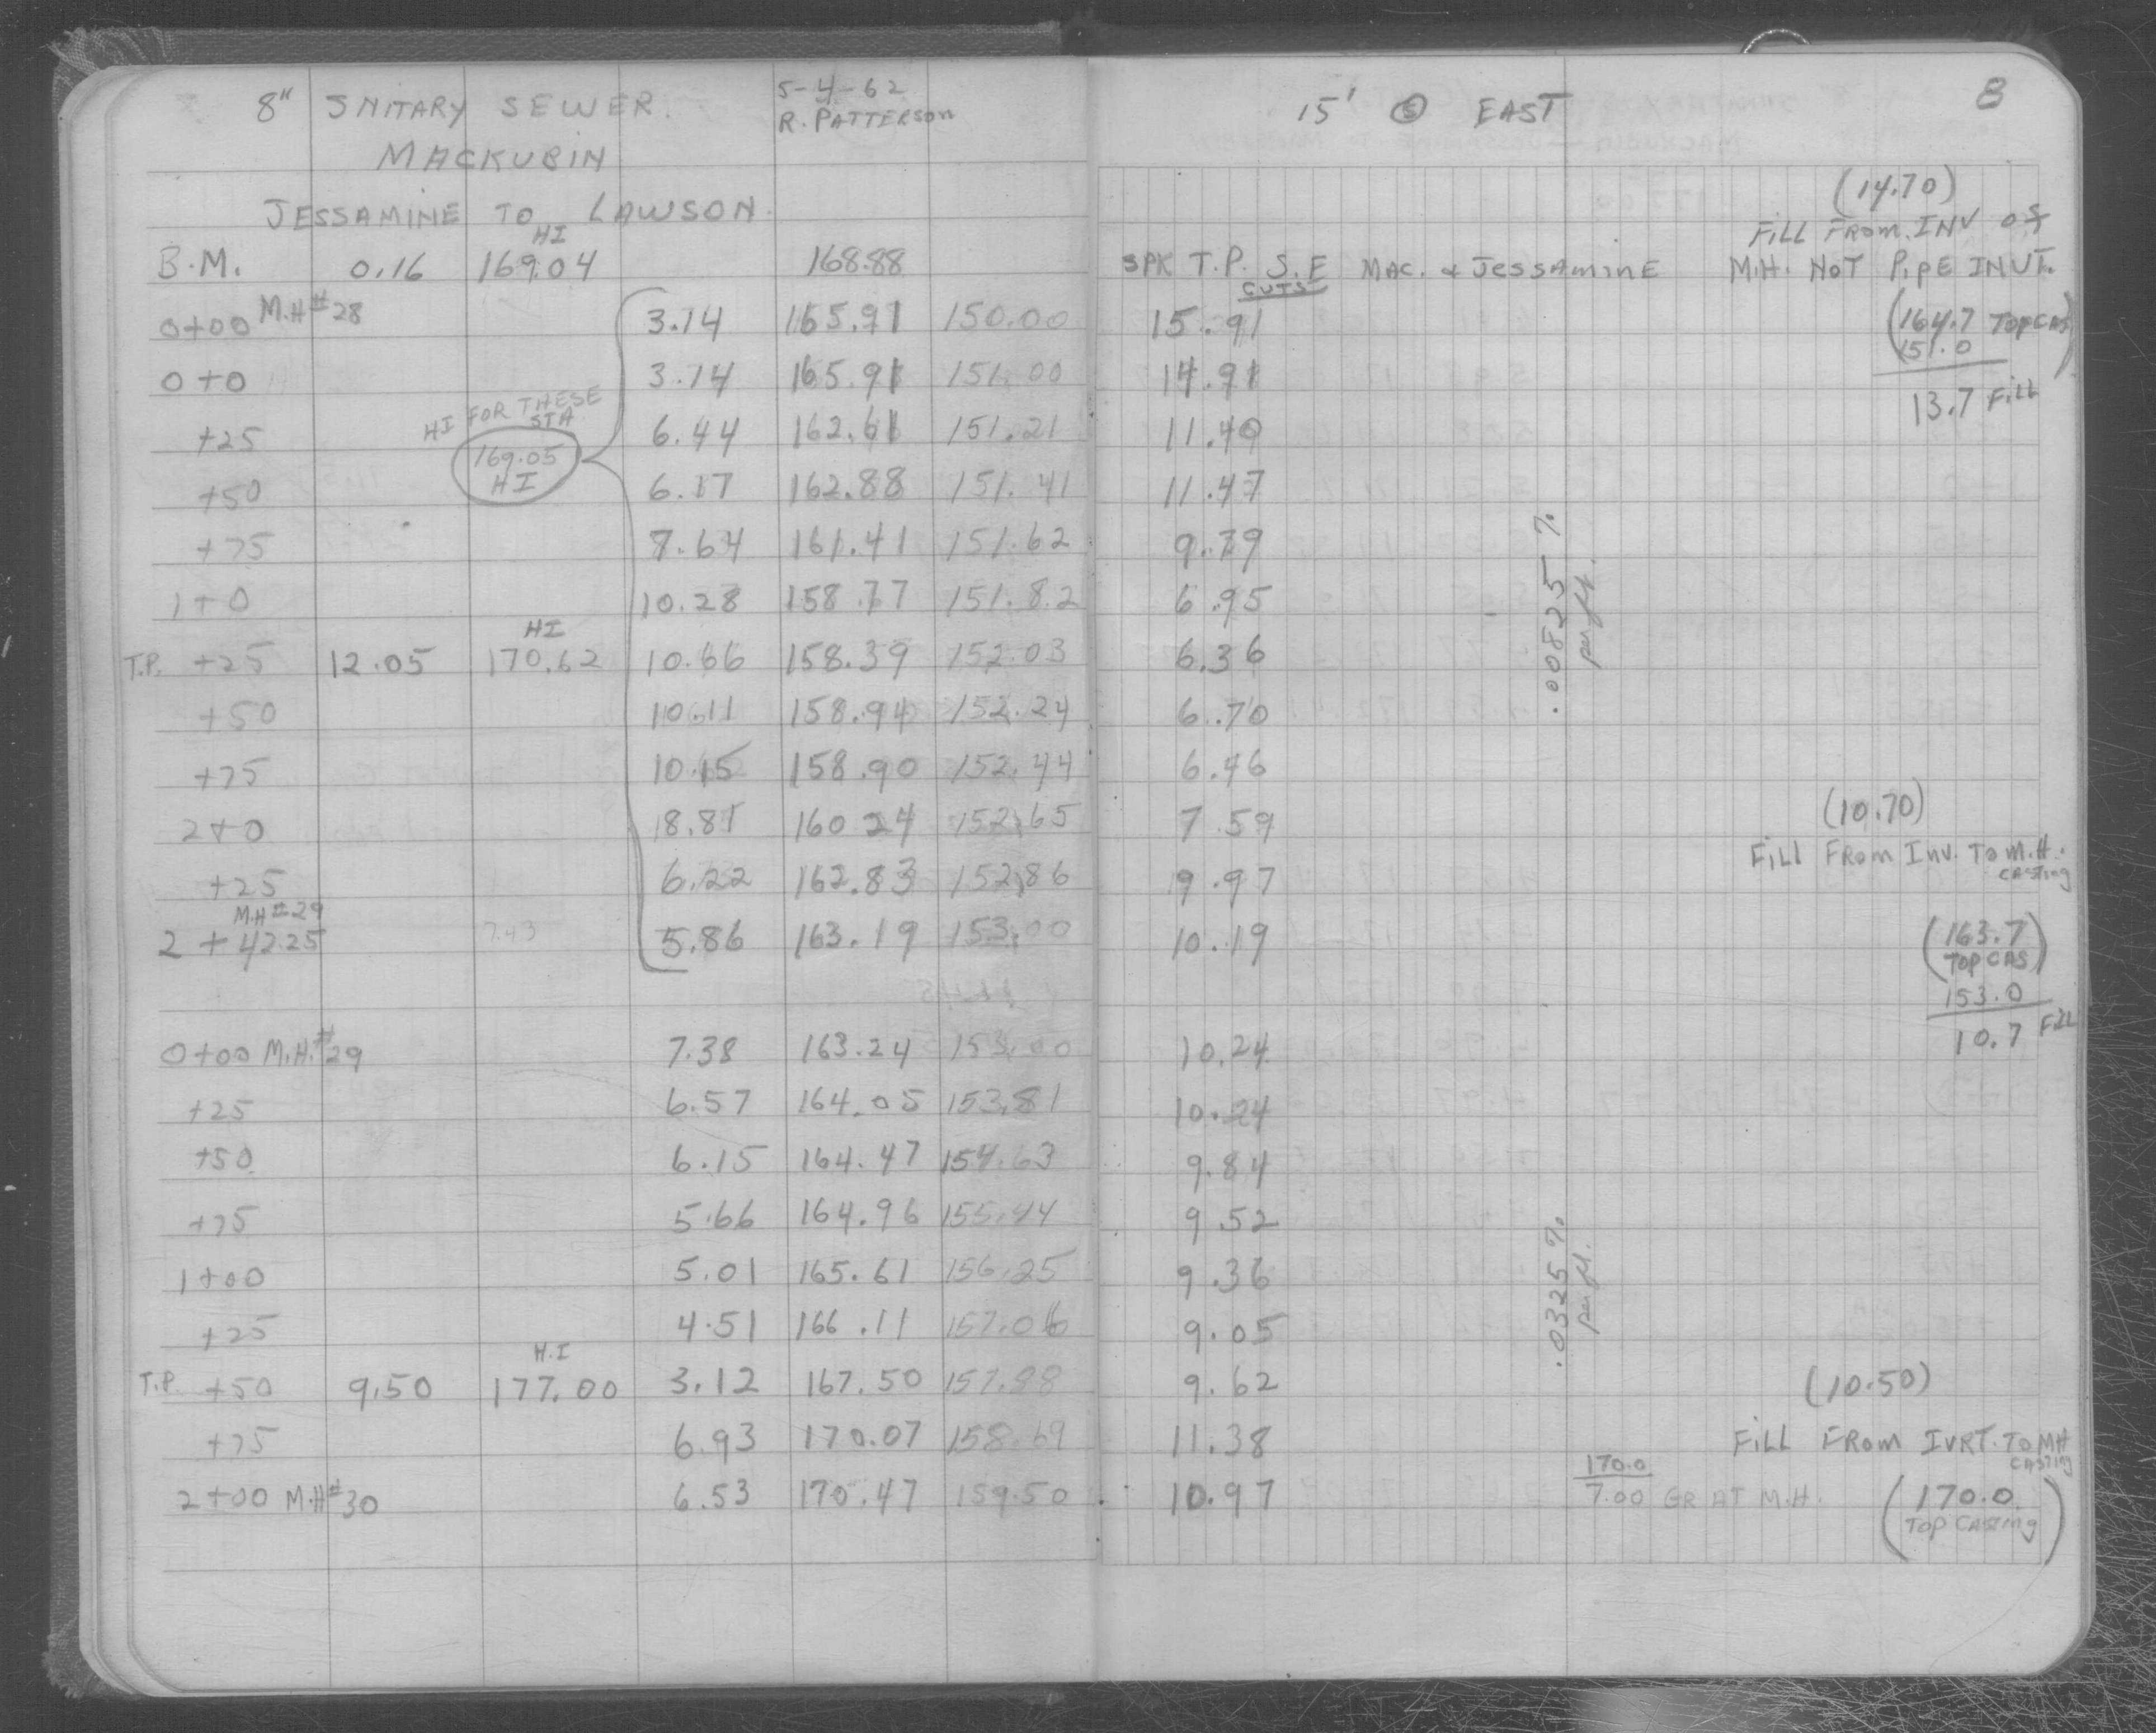 8" SNITARY SEWER. 5-4-62
R. PATTERSON
MACKUBIN
JESSAMINE TO LAWSON.
HI
B.M. 0.16 169.04 168.88
0+00 M.H #28 3.14 165.91 150.00
0+0 3.14 165.91 151.00
HI FOR THESE STA
+25 6.44 162.61 151.21
169.05
HI
+50 6.17 162.88 151.41
+75 7.64 161.41 151.62
1+0 10.28 158.77 151.82
HI
T.P. +25 12.05 170.62 10.66 158.39 152.03
+50 10.11 158.94 152.24
+75 10.15 158.90 152.44
2+0 8.81 160 24 152.65
+25 6.22 162.83 152.86
M.H #29
2 + 42.25 7.43 5.86 163.19 153.00
0+00 M.H. #29 7.38 163.24 153.00
+25 6.57 164.05 153.81
+50 6.15 164.47 154.63
+75 5.66 164.96 155.44
1+00 5.01 165.61 156.25
+25 4.51 166.11 157.06
H.I
T.P. +50 9.50 177.00 3.12 167.50 157.88
+75 6.93 170.07 158.69
2+00 M.H #30 6.53 170.47 159.50
8
15' EAST
(14.70)
FILL FROM INV OF
SPK T.P. S.E MAC. & JESSAMINE M.H. NOT PIPE INVT.
CUTS
15.91 (164.7 TOP CAS)
151.0
14.91
13.7 FILL
11.40
11.47
9.79
6.95
6.36
.00825 %
per ft.
6.70
6.46
(10.70)
7 59
FILL FROM INV. TO M.H.
CASTING
9.97
10.19 (163.7
TOP CAS)
153.0
10.7 FILL
10.24
10.24
9.84
9.52
9.36
9.05
.0325 %
per ft.
9.62 (10.50)
11.38 FILL FROM IVRT. TO MH
CASTING
170.0
10.97 7.00 GR AT M.H. (170.0
TOP CASTING)